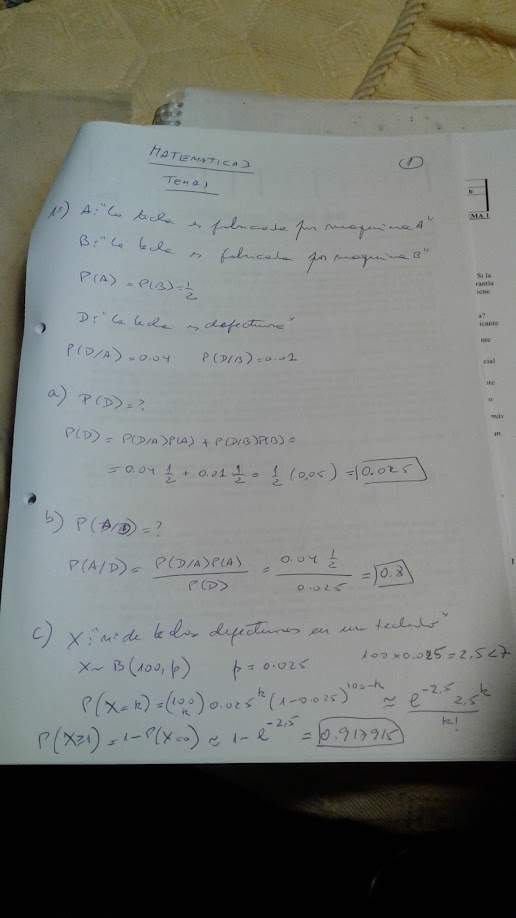 MATEMATICA 3
TEMA 1
①
1º) A: "La tecla es fabricada por maquina A"
B: "La tecla es fabricada por maquina B"
P(A) = P(B) = 1/2
D: "la tecla es defectuosa"
P(D/A) = 0.04 P(D/B) = 0.01
a) P(D) = ?
P(D) = P(D/A)P(A) + P(D/B)P(B) =
= 0.04 1/2 + 0.01 1/2 = 1/2 (0.05) = 0.025
b) P(A/D) = ?
P(A/D) = P(D/A)P(A) / P(D) = 0.04 1/2 / 0.025 = 0.8
c) X: "nº de teclas defectuosas en un teclado"
X ~ B(100, p) p = 0.025 100 x 0.025 = 2,5 < 7
P(X = k) = (100 k) 0.025^k (1 - 0.025)^100-k ≈ e^-2,5 2,5^k / k!
P(X ≥ 1) = 1 - P(X = 0) ≈ 1 - e^-2,5 = 0.917915
MA 1
Si la
rantía
iene
a?
icante
nte
cial
o
más